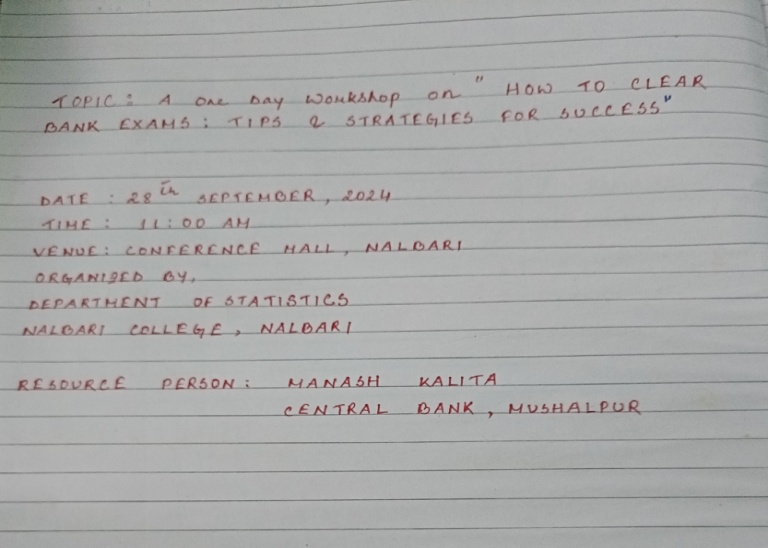 TOPIC: A One Day Workshop on " HOW TO CLEAR
BANK EXAMS: TIPS & STRATEGIES FOR SUCCESS"
DATE : 28th SEPTEMBER, 2024
TIME : 11:00 AM
VENUE: CONFERENCE HALL, NALBARI
ORGANISED BY,
DEPARTMENT OF STATISTICS
NALBARI COLLEGE, NALBARI
RESOURCE PERSON: MANASH KALITA
CENTRAL BANK, MUSHALPUR